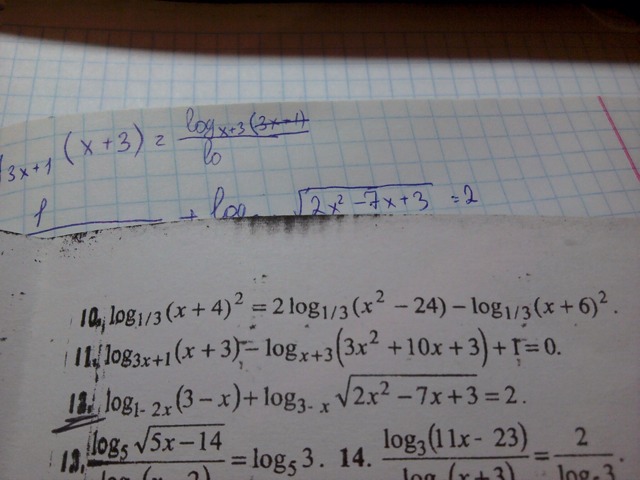 3x+1 (x+3) = log_{x+3}(3x+1)
lo
1 + log √(2x² -7x+3) = 2
10. log_{1/3}(x+4)² = 2log_{1/3}(x² − 24) − log_{1/3}(x+6)².
11. log_{3x+1}(x+3) − log_{x+3}(3x² +10x+3)+1=0.
12. log_{1-2x}(3−x)+log_{3-x}√(2x² −7x+3) = 2.
13. log₅√(5x−14) = log₅3. 14. log₃(11x−23) = 2
(x+3)